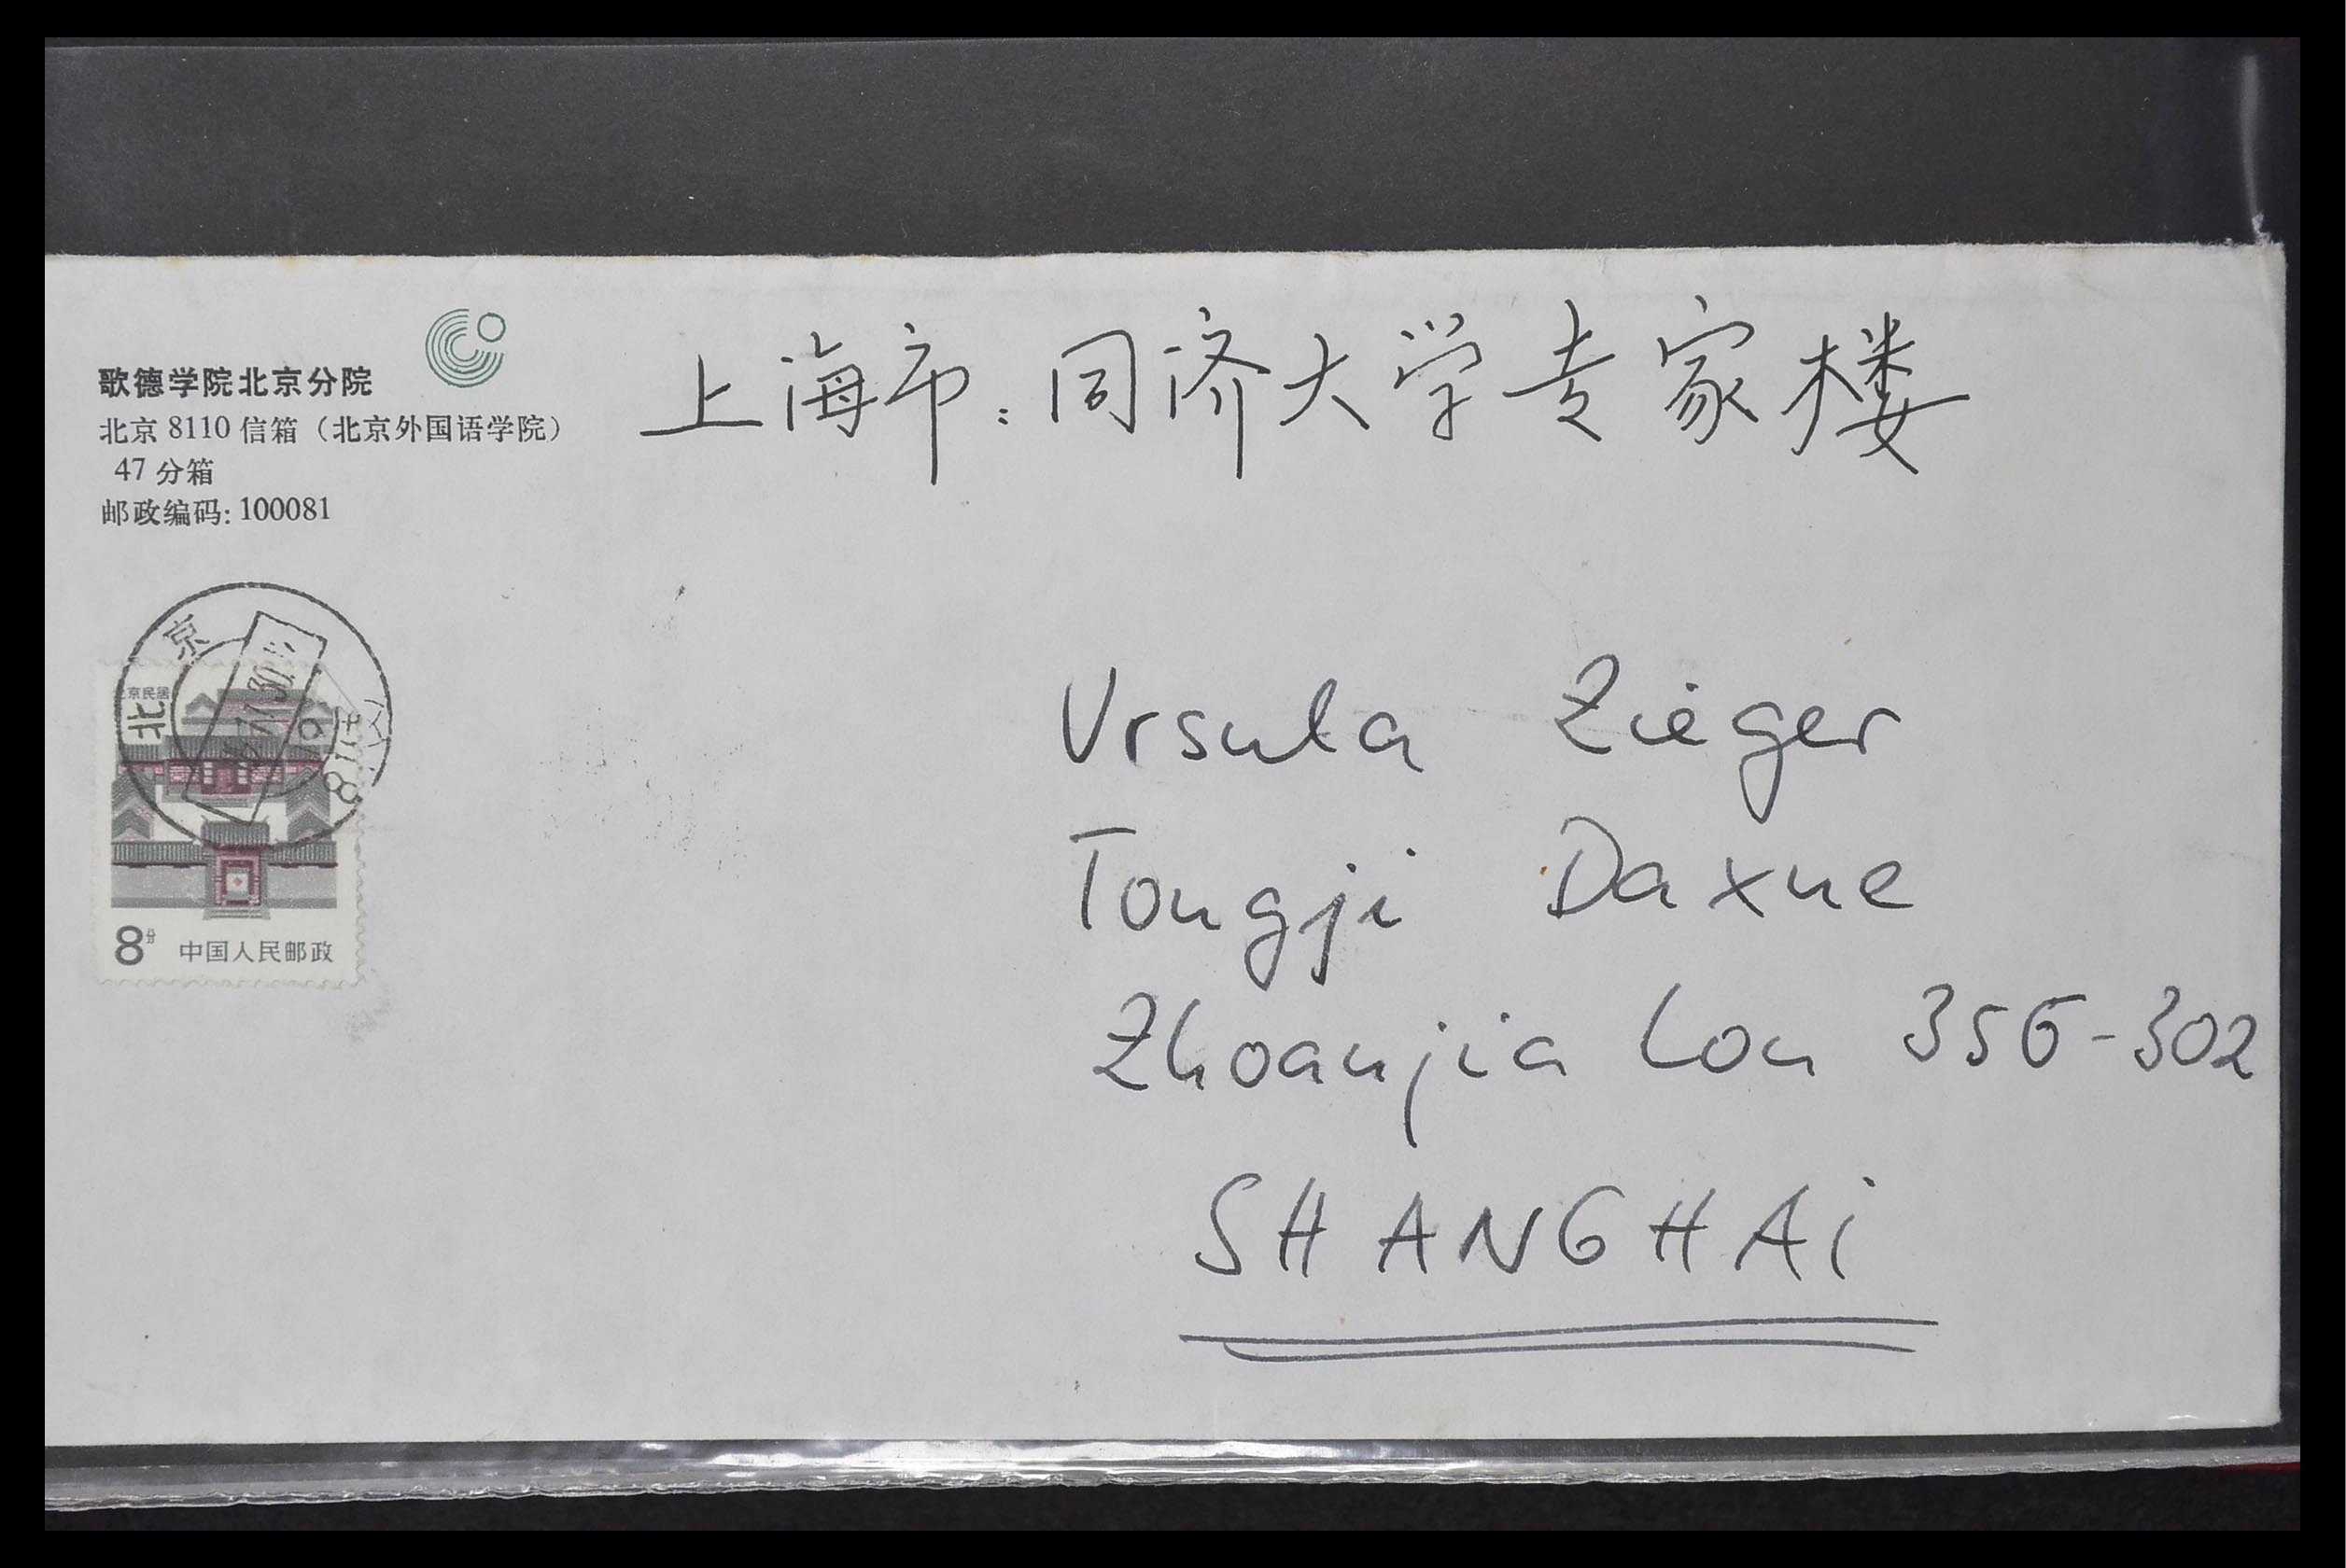 歌德学院北京分院
北京 8110 信箱（北京外国语学院）
47 分箱
邮政编码: 100081
上海市: 同济大学专家楼
北京
北京民居
8分 中国人民邮政
Ursula Zieger
Tongji Daxue
Zhoanjia Lou 356-302
SHANGHAi